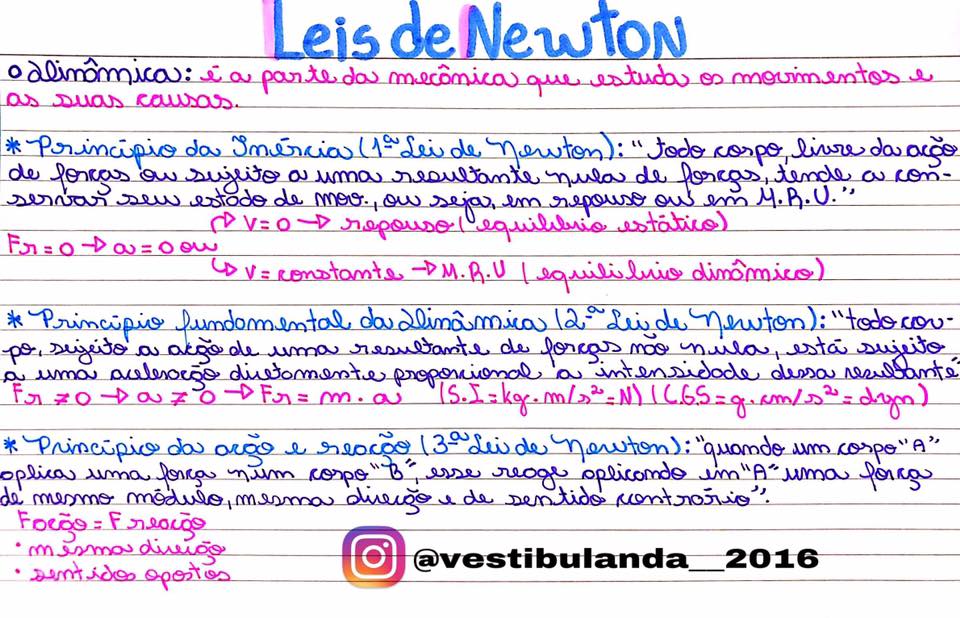 Leis de Newton
Dinâmica: é a parte da mecânica que estuda os movimentos e
as suas causas.
* Princípio da Inércia (1ª Lei de Newton): "todo corpo, livre da ação
de forças ou sujeito a uma resultante nula de forças, tende a con-
servar seu estado de mov., ou seja, em repouso ou em M.R.U."
↱ V=0 → repouso (equilíbrio estático)
Fr=0 → a=0 ou
↳ V=constante → M.R.U (equilíbrio dinâmico)
* Princípio fundamental da Dinâmica (2ª Lei de Newton): "todo cor-
po, sujeito a ação de uma resultante de forças não nula, está sujeito
a uma aceleração diretamente proporcional a intensidade dessa resultante"
Fr ≠ 0 → a ≠ 0 → Fr = m.a (S.I=kg.m/s²=N) (CGS=g.cm/s²=dyn)
* Princípio da ação e reação (3ª Lei de Newton): "quando um corpo "A"
aplica uma força num corpo "B", esse reage aplicando em "A" uma força
de mesmo módulo, mesma direção e de sentido contrário".
Fação = Freação
• mesma direção
• sentidos opostos
@vestibulanda__2016